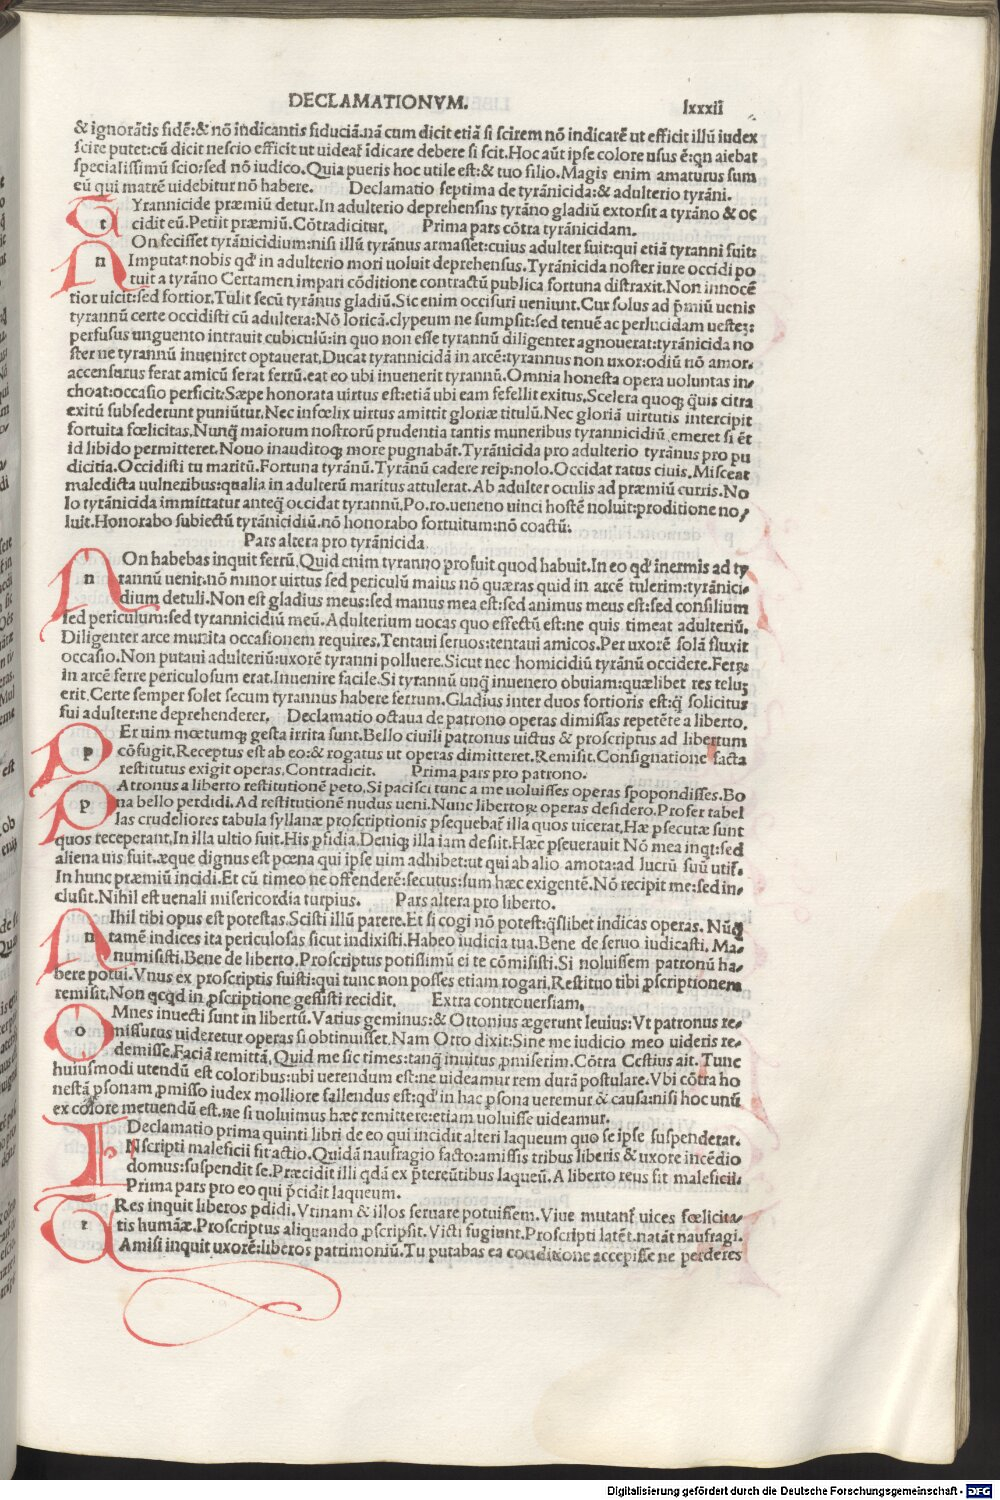 DECLAMATIONVM. lxxxii
& ignorãtis fidẽ:& nõ indicantis fiduciã.nã cum dicit etiã si scirem nõ indicarẽ ut efficit illũ iudex
scire putet:cũ dicit nescio efficit ut uideat̃ ĩdicare debere si scit.Hoc aũt ipse colore usus ẽ:qñ aiebat
specialissimũ scio:sed nõ iudico.Quia pueris hoc utile est:& tuo filio.Magis enim amaturus sum
eũ qui matrẽ uidebitur nõ habere. Declamatio septima de tyrãnicida:& adulterio tyrãni.
t Yrannicide præmiũ detur.In adulterio deprehensus tyrãno gladiũ extorsit a tyrãno & oc
cidit eũ.Petiit præmiũ.Cõtradicitur. Prima pars cõtra tyrãnicidam.
n On fecisset tyrãnicidium:nisi illũ tyrãnus armasset:cuius adulter fuit:qui etiã tyranni fuit:
Imputat nobis qd' in adulterio mori uoluit deprehensus.Tyrãnicida noster iure occidi po
tuit a tyrãno Certamen impari cõditione contractũ publica fortuna distraxit.Non innocẽ
tior uicit:sed fortior.Tulit secũ tyrãnus gladiũ.Sic enim occisuri ueniunt.Cur solus ad p̃miũ uenis
tyrannũ certe occidisti cũ adultera:Nõ loricã.clypeum ne sumpsit:sed tenuẽ ac perlucidam ueste::
perfusus unguento intrauit cubiculũ:in quo non esse tyrannũ diligenter agnouerat:tyrãnicida no
ster ne tyrannũ inueniret optauerat.Ducat tyrannicidã in arcẽ:tyrannus non uxor:odiũ nõ amor.
accensurus ferat amicũ ferat ferrũ.eat eo ubi inuenerit tyrannũ.Omnia honesta opera uoluntas in-
choat:occasio perficit:Sæpe honorata uirtus est:etiã ubi eam fefellit exitus.Scelera quoq; q̃uis citra
exitũ subsederunt puniũtur.Nec infœlix uirtus amittit gloriæ titulũ.Nec gloriã uirtutis intercipit
fortuita fœlicitas.Nunq̃ maiorum nostrorũ prudentia tantis muneribus tyrannicidiũ emeret si ẽt
id libido permitteret.Nouo inauditoq; more pugnabãt.Tyrãnicida pro adulterio tyrãnus pro pu
dicitia.Occidisti tu maritũ.Fortuna tyrãnũ.Tyrãnũ cadere reip:nolo.Occidat ratus ciuis.Misceat
maledicta uulneribus:qualia in adulterũ maritus attulerat.Ab adulter oculis ad præmiũ curris.No
lo tyrãnicida immittatur anteq̃ occidat tyrannũ.Po.ro.ueneno uinci hostẽ noluit:proditione no,
luit.Honorabo subiectũ tyrãnicidiũ.nõ honorabo fortuitum:nõ coactũ:
Pars altera pro tyrãnicida
n On habebas inquit ferrũ.Quid enim tyranno profuit quod habuit.In eo qd' inermis ad ty
rannũ uenit.nõ minor uirtus sed periculũ maius nõ quæras quid in arcẽ tulerim:tyrãnici-
dium detuli.Non est gladius meus:sed manus mea est:sed animus meus est:sed consilium
sed periculum:sed tyrannicidiũ meũ.Adulterium uocas quo effectũ est:ne quis timeat adulteriũ.
Diligenter arce munita occasionem requires.Tentaui seruos:tentaui amicos.Per uxorẽ solã fluxit
occasio.Non putaui adulteriũ:uxorẽ tyranni polluere.Sicut nec homicidiũ tyrãnũ occidere.Ferr:
in arcẽ ferre periculosum erat.Inuenire facile.Si tyrannũ unq̃ inuenero obuiam:quælibet res telu:
erit.Certe semper solet secum tyrannus habere ferrum.Gladius inter duos fortioris est:q̃ solicitus
fui adulter:ne deprehenderer. Declamatio octaua de patrono operas dimissas repetẽte a liberto.
p Er uim mœtumq; gesta irrita sunt.Bello ciuili patronus uictus & proscriptus ad libertum
cõfugit.Receptus est ab eo:& rogatus ut operas dimitteret.Remisit.Consignatione facta
restitutus exigit operas.Contradicit. Prima pars pro patrono.
p Atronus a liberto restitutionẽ peto.Si pacisci tunc a me uoluisses operas spopondisses.Bo
na bello perdidi.Ad restitutionẽ nudus ueni.Nunc libertoꝝ operas desidero.Profer tabel
las crudeliores tabula syllanæ proscriptionis psequebat̃ illa quos uicerat.Hæ psecutæ sunt
quos receperant.In illa ultio fuit.His pfidia.Deniq; illa iam desiit.Hæc pseuerauit Nõ mea inqt:sed
aliena uis fuit.æque dignus est pœna qui ipse uim adhibet:ut qui ab alio amota:ad lucrũ suũ utit̃.
In hunc præmiũ incidi.Et cũ timeo ne offenderẽ:secutus:sum hæc exigentẽ.Nõ recipit me:sed in-
clusit.Nihil est uenali misericordia turpius. Pars altera pro liberto.
n Ihil tibi opus est potestas.Scisti illũ parere.Et si cogi nõ potest:q̃slibet indicas operas. Nũq̃
tamẽ indices ita periculosas sicut indixisti.Habeo iudicia tua.Bene de seruo iudicasti. Ma-
numisisti.Bene de liberto.Proscriptus potissimũ ei te cõmisisti.Si noluissem patronũ ha-
bere potui.Vnus ex proscriptis fuisti:qui tunc non posses etiam rogari.Restituo tibi ꝓscriptionem
remisit.Non qcqd in ꝓscriptione gessisti recidit. Extra controuersiam.
o Mnes inuecti sunt in libertũ.Vatius geminus:& Ottonius ægerunt leuius:Vt patronus re-
missurus uideretur operas si obtinuisset.Nam Otto dixit:Sine me iudicio meo uideris re-
demisse.Faciã remittã.Quid me sic times:tanq̃ inuitus ꝓmiserim.Cõtra Cestius ait. Tunc
huiusmodi utendũ est coloribus:ubi uerendum est:ne uideamur rem durã postulare.Vbi cõtra ho
nestã psonam ꝓmisso iudex molliore fallendus est:qd' in hac psona ueremur & causa:nisi hoc unũ
ex colore metuendũ est.ne si uoluimus hæc remittere:etiam uoluisse uideamur.
Declamatio prima quinti libri de eo qui incidit alteri laqueum quo se ipse suspenderat.
I Nscripti maleficii sit actio.Quidã naufragio facto:amissis tribus liberis & uxore incẽdio
domus:suspendit se.Præcidit illi qdã ex p̃tereũtibus laqueũ.A liberto reus fit maleficii.
Prima pars pro eo qui p̃cidit laqueum.
t Res inquit liberos pdidi.Vtinam & illos seruare potuissem.Viue mutant̃ uices fœlicita-
tis humãæ.Proscriptus aliquando ꝓscripsit.Victi fugiunt.Proscripti latẽt.natãt naufragi.
Amisi inquit uxorẽ:liberos patrimoniũ.Tu putabas ea conditione accepisse ne perderes
Digitalisierung gefördert durch die Deutsche Forschungsgemeinschaft - DFG